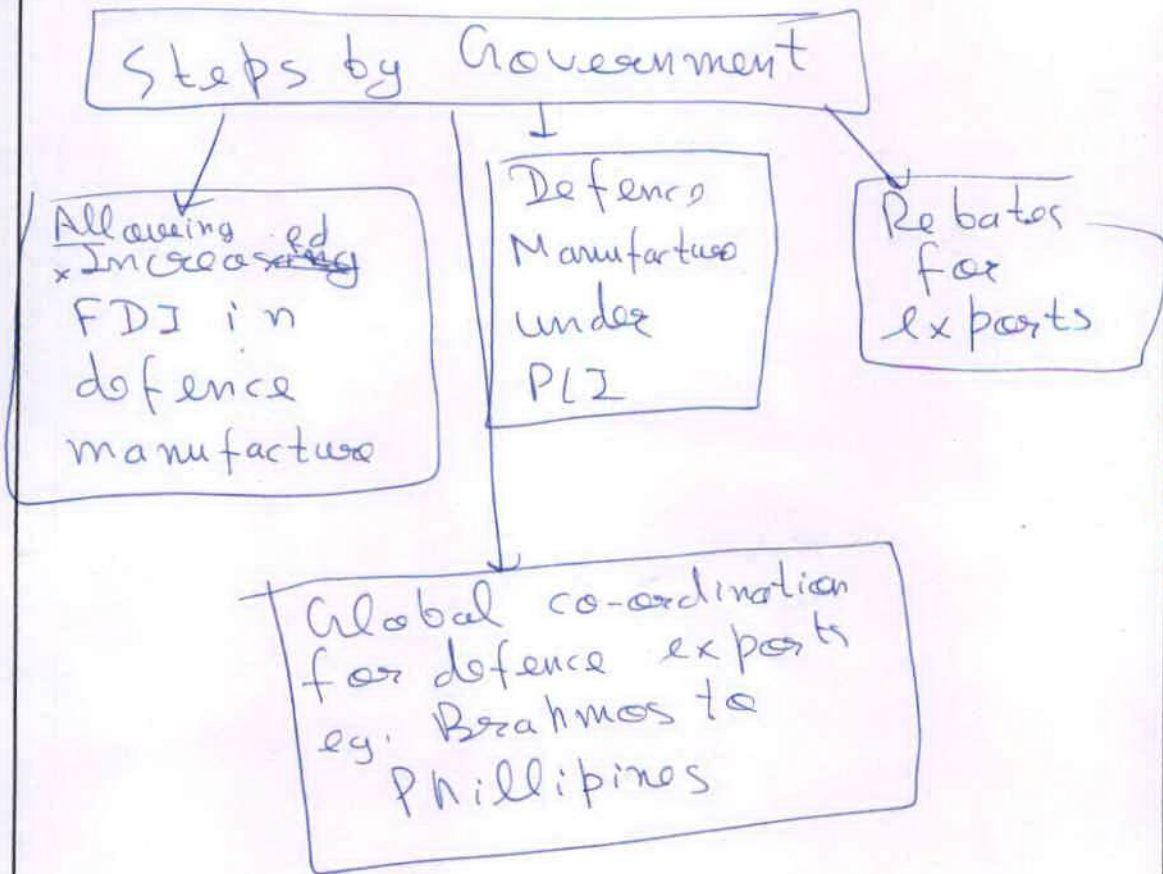 Steps by Government
Allowing ed
Increasing
FDI in
defence
manufacture
Defence
Manufacture
under
PLI
Rebates
for
exports
Global co-ordination
for defence exports
eg. Brahmos to
Phillipines